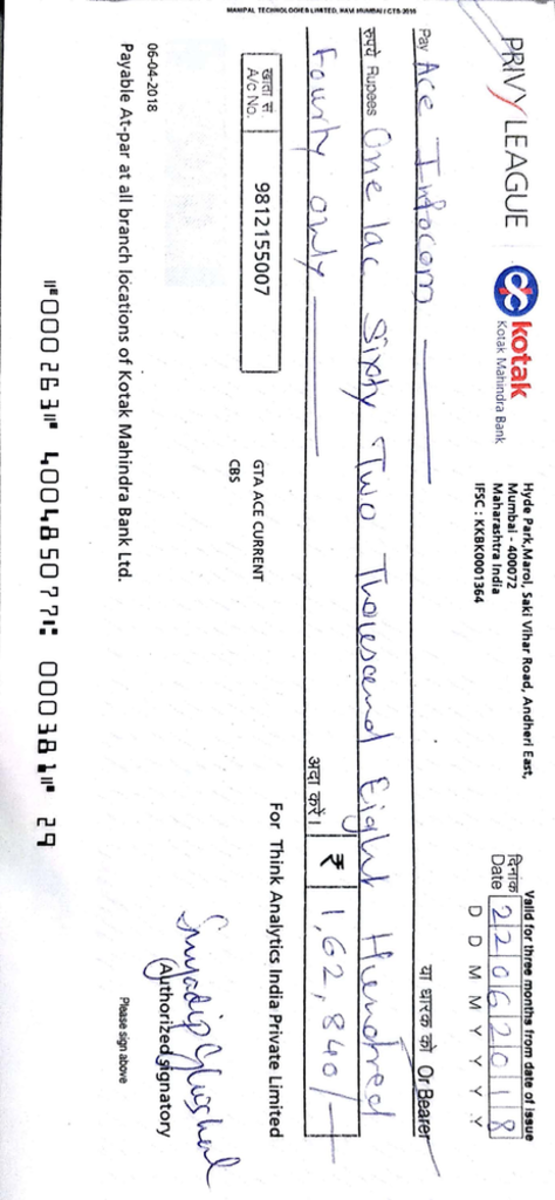 MANIPAL TECHNOLOGIES LIMITED, NAVI MUMBAI / CTS-2010
PRIVY LEAGUE
kotak
Kotak Mahindra Bank
Hyde Park,Marol, Saki Vihar Road, Andheri East,
Mumbai - 400072
Maharashtra India
IFSC : KKBK0001364
Valid for three months from date of issue
दिनांक
Date 22062018
D D M M Y Y Y Y
Pay Ace Infocom
या धारक को Or Bearer
रुपये Rupees One lac Sixty Two Thousand Eight Hundred
Fourty only
अदा करें। ₹ 1,62,840/-
खाता सं.
A/c No. 9812155007
GTA ACE CURRENT
CBS
For Think Analytics India Private Limited
Authorized Signatory
Please sign above
06-04-2018
Payable At-par at all branch locations of Kotak Mahindra Bank Ltd.
⑈000263⑈ 400485077⑆ 000381⑈ 29